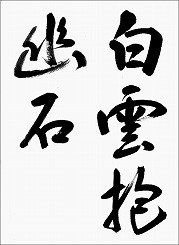 白雲抱
幽石